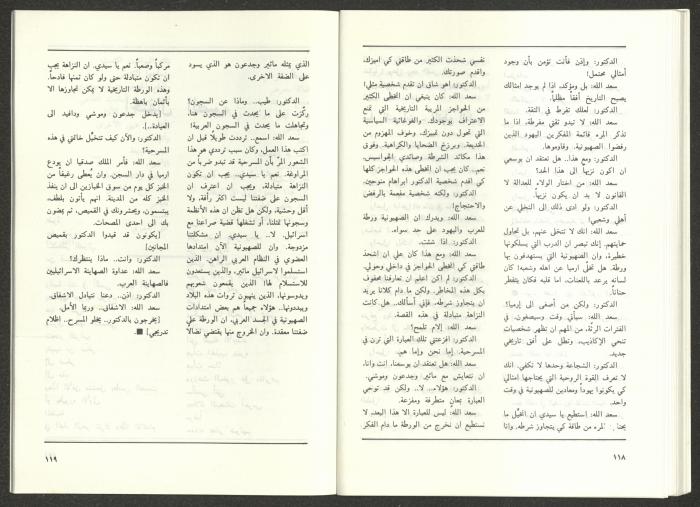 الدكتور: وإذن فأنت تؤمن بأن وجود
أمثالي محتمل!
سعد الله: بل ومؤكد، اذا لم يوجد امثالك
يصبح التاريخ أفقاً مظلماً.
الدكتور: لعلك تفرط في الثقة.
سعد الله: لا تبدو ثقتي مفرطة، اذا ما
تذكر المرء قائمة المفكرين اليهود الذين
رفضوا الصهيونية، وقاوموها.
الدكتور: ومع هذا.. هل تعتقد ان بوسعي
ان اكون نزيهاً الى هذا الحد؟
سعد الله: من اختار الولاء للعدالة لا
القانون لا بد ان يكون نزيهاً.
الدكتور: ولو ادى ذلك إلى التخلي عن
أهلي وشعبي!
سعد الله: انك لا تتخلى عنهم، بل تحاول
حمايتهم. إنك تبصر ان الدرب التي يسلكونها
خطيرة، وان الصهيونية التي يستهدفون بها
ورطة. هل تخلى ارميا عن اهله وشعبه! كان
لسانه يرعد باللعنات، اما قلبه فكان يتفطر
حناناً.
الدكتور: ولكن من أصغى الى إرميا!
سعد الله: سيأتي وقت وسيصغون. في
الفترات الرثة، من المهم ان تظهر شخصيات
تنحي الاكاذيب، وتطل على أفق تاريخي
جديد.
الدكتور: الشجاعة وحدها لا تكفي. انك
لا تعرف القوة الروحية التي يحتاجها امثالي
كي يكونوا يهوداً ومعادين للصهيونية في وقت
واحد.
سعد الله: إستطيع يا سيدي ان اتخيل ما
المرء من طاقة كي يتجاوز شرطه. وانا
نفسي شحذت الكثير من طاقتي كي اميزك،
واقدم صورتك.
الدكتور: اهو شاق ان تقدم شخصية مثلي!
سعد الله: كان ينبغي ان اتخطى الكثير
من الحواجز المريبة التاريخية التي تمنع
الاعتراف بوجودك. والغوغائية السياسية
التي تحول دون تمييزك. وخوف المهزوم من
الخديعة. وبرزخ الضحايا والكراهية. وفوق
هذا مكائد الشرطة وصائدي الجواسيس.
نعم. كان يجب ان اتخطى هذه الحواجز كلها
كي اقدم شخصية الدكتور ابراهام منوحين.
الدكتور: ولكنه شخصية مفعمة بالرفض
والاحتجاج!
سعد الله: ويدرك ان الصهيونية ورطة
للعرب واليهود على حد سواء.
الدكتور: اذا شئت.
سعد الله: ومع هذا كان علي ان اشحذ
طاقتي كي اتخطى الحواجز في داخلي وحولي.
الدكتور: لم اكن اعلم ان تعارفنا محفوف
بكل هذه المخاطر. ولكن ما دام كلانا يريد
ان يتجاوز شرطه. فإني أسألك.. هل كانت
النزاهة متبادلة في هذه القصة.
سعد الله: إلام تلمح؟
الدكتور: افزعتني تلك العبارة التي ترن في
المسرحية. إما نحن وإما هم.
سعد الله: هل تعتقد ان بوسعنا، انت وأنا،
ان نتعايش مع مائير وجدعون وموشي.
الدكتور: هؤلاء.. لا.. ولكن قد توحي
العبارة بمعانٍ متطرفة ومفزعة.
سعد الله: ليس للعبارة الا هذا البعد. لا
نستطيع ان نخرج من الورطة ما دام الفكر
١١٨
الذي يمثله مائير وجدعون هو الذي يسود
على الضفة الاخرى.
الدكتور: طيب.. وماذا عن السجون؟
ركّزت على ما يحدث في السجون هنا،
وتجاهلت ما يحدث في السجون العربية!
سعد الله: اسمع.. ترددت طويلاً قبل ان
اكتب هذا العمل. وكان سبب ترددي هو هذا
الشعور المرّ بأن المسرحية قد تبدو ضرباً من
المراوغة. نعم يا سيدي.. يجب ان تكون
النزاهة متبادلة، ويجب ان اعترف ان
السجون على ضفتنا ليست اكثر رأفة، ولا
أقل وحشية. ولكن هل تظن ان هذه الأنظمة
وسجونها تمثلنا، أو تشغلها قضية صراعنا مع
اسرائيل. لا.. يا سيدي. ان مشكلتنا
مزدوجة. وان للصهيونية الآن امتدادها
العضوي في النظام العربي الراهن. الذين
استسلموا لاسرائيل مائير، والذين يستعدون
للاستسلام لها! الذين يقمعون شعوبهم
ويدوسونها. الذين ينهبون ثروات هذه البلاد
ويبددونها.. هؤلاء جميعاً هم بعض امتدادات
الصهيونية في الجسد العربي. ان الورطة على
ضفتنا معقدة. وان الخروج منها يقتضي نضالاً
مركباً وصعباً. نعم يا سيدي. ان النزاهة يجب
ان تكون متبادلة حتى ولو كان ثمنها فادحاً.
وهذه الورطة التاريخية لا يمكن تجاوزها الا
بأثمان باهظة.
[يدخل جدعون وموشي ودافيد الى
العيادة..].
الدكتور: والآن كيف تتخيّل خاتمتي في هذه
المسرحية؟
سعد الله: فأمر الملك صدقيا ان يودع
ارميا في دار السجن. وان يُعطى رغيفاً من
الخبز كل يوم من سوق الخبازين الى ان ينفذ
الخبز كله من المدينة. انهم يأتون بلطف.
يبتسمون، ويحشرونك في القميص، ثم يمضون
بك الى احدى المصحات.
[يكونون قد قيدوا الدكتور بقميص
المجانين]
الدكتور: وانت.. ماذا ينتظرك!
سعد الله: عداوة الصهاينة الاسرائيليين
فالصهاينة العرب.
الدكتور: اذن.. دعنا نتبادل الاشفاق.
سعد الله: الاشفاق.. وربما الأمل.
[يخرجون بالدكتور.. يخلو المسرح. اظلام
تدريجي] ■.
١١٩